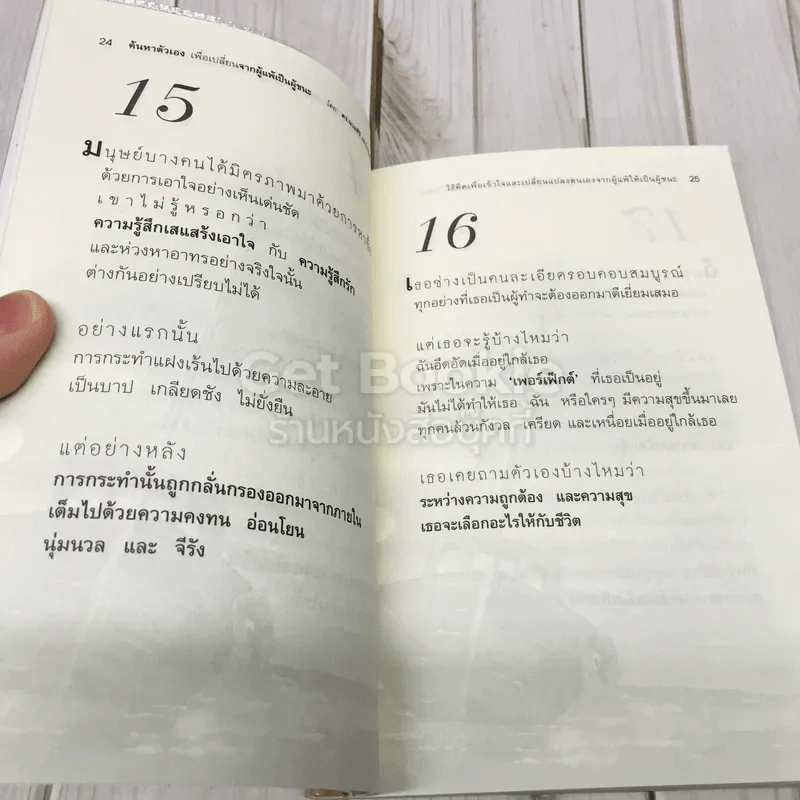 24 ค้นหาตัวเอง เพื่อเปลี่ยนจากผู้แพ้เป็นผู้ชนะ
15
มนุษย์บางคนได้มิตรภาพมาด้วยการ
ด้วยการเอาใจอย่างเห็นเด่นชัด
เขาไม่รู้หรอกว่า
ความรู้สึกเสแสร้งเอาใจ กับ ความรู้สึกรัก
และห่วงหาอาทรอย่างจริงใจนั้น
ต่างกันอย่างเปรียบไม่ได้
อย่างแรกนั้น
การกระทำแฝงเร้นไปด้วยความละอาย
เป็นบาป เกลียดชัง ไม่ยั่งยืน
แต่อย่างหลัง
การกระทำนั้นถูกกลั่นกรองออกมาจากภายใน
เต็มไปด้วยความคงทน อ่อนโยน
นุ่มนวล และ จีรัง
วิธีคิดเพื่อเข้าใจและเปลี่ยนแปลงตนเองจากผู้แพ้ให้เป็นผู้ชนะ 25
16
เธอช่างเป็นคนละเอียดรอบคอบสมบูรณ์
ทุกอย่างที่เธอเป็นผู้ทำจะต้องออกมาดีเยี่ยมเสมอ
แต่เธอจะรู้บ้างไหมว่า
ฉันอึดอัดเมื่ออยู่ใกล้เธอ
เพราะในความ 'เพอร์เฟ็กต์' ที่เธอเป็นอยู่
มันไม่ได้ทำให้เธอ ฉัน หรือใครๆ มีความสุขขึ้นมาเลย
ทุกคนล้วนกังวล เครียด และเหนื่อยเมื่ออยู่ใกล้เธอ
เธอเคยถามตัวเองบ้างไหมว่า
ระหว่างความถูกต้อง และความสุข
เธอจะเลือกอะไรให้กับชีวิต
Get Bookie